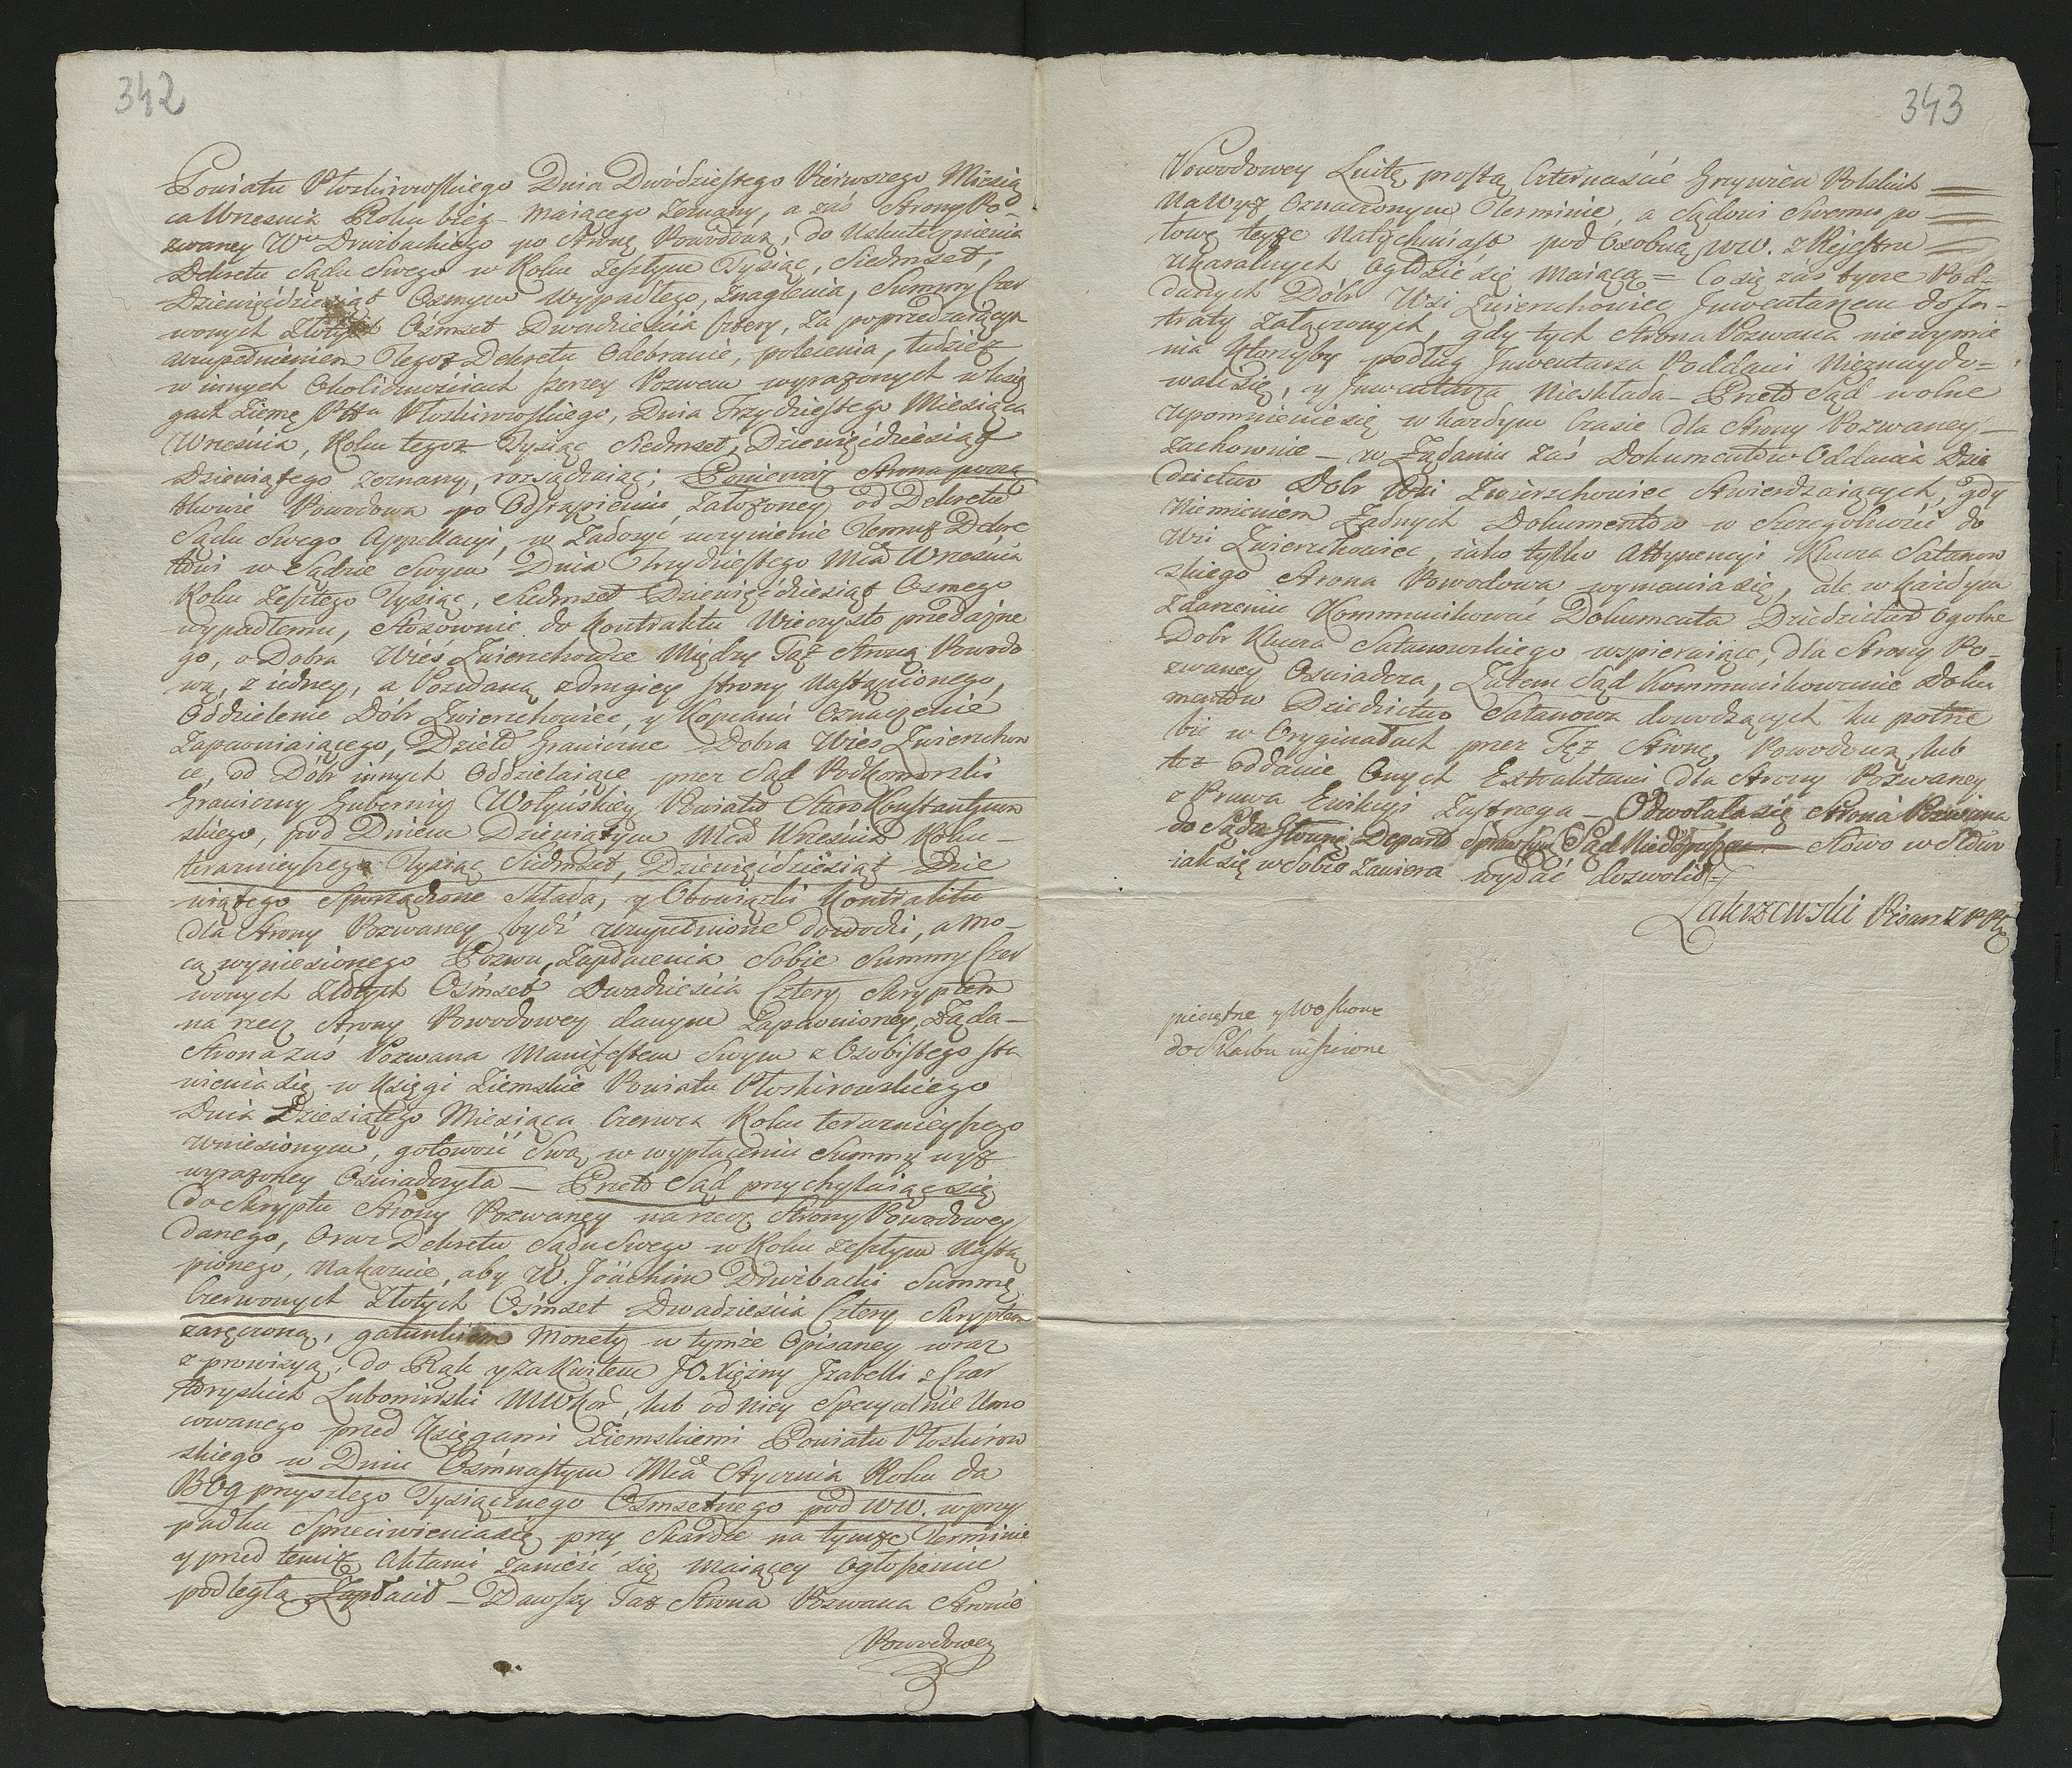 342
Powiatu Płoskirowskiego Dnia Dwódziestego Pierwszego Miesią
ca Wrzesnia Roku bież maiącego zeznany, a zaś Strony Po-
zwaney W° Drwibackiego po Stronę Powodową, do Uskutecznienia
Dekretu Sądu Swego w Roku Zeszłym Tysiąc, Siedmset,
Dziewięćdziesiąt Osmym wypadłego, znaglenia, Summy Czer
wonych Złotych Ośmset Dwadzieścia Cztery, za poprzedzaiącym
uzupełnieniem Tegoż Dekretu Odebranie, polecenia, tudzież
w innych Okolicznościach szerzey Pozwem wyrażonych w Xię
gach Ziemę Pttu Płoskirowskiego, Dnia Trzydziestego Miesiąca
Września, Roku tegoż Tysiąc Siedmset, Dziewięćdziesiąt
Dziewiątego zeznany, rozsądzaiąc; Ponieważ Strona
Powodowa po Odstąpieniu założoney od Dekretu
Sądu Swego Appellacyi, w Zadosyć uczynienie Temuż Dekre
towi w Sądzie Swym Dnia Trzydziestego Mca Września
Roku Zeszłego Tysiąc, Siedmset Dziewięćdziesiąt Osmego
wypadłemu, Stosownie do Kontraktu Wieczysto przedajne
go, o Dobra Wieś Zwierzchowce Między Tąż Stroną Powodo
wą, z iedney, a Pozwaną z drugiey strony Nastąpionego,
Oddzielenie Dóbr Zwierzchowiec, y Kopcami Oznaczenie
Zapewniaiącego, Dzieło Graniczne Dobra Wieś Zwierzchow
ce, od Dóbr innych Oddzielaiące przez Sąd Podkomorski
Graniczny Gubernij Wołyńskiey Powiatu StaroKonstantynow
skiego, pod Dniem Dziewiątym Mca Września Roku
teraznieyszego Tysiąc Siedmset, Dziewięćdziesiąt Dzie
wiątego Sporządzone składa, y Obowiązki Kontraktu
dla Strony Pozwaney bydź uzupełnione dowodzi, a mo-
cą wyniesionego Pozwu, Zapłacenia Sobie Summy Czer
wonych Złotych Ośmset Dwadzieścia Cztery Skryptem
na rzecz Strony Powodowey danym Zapewnioney, Żąda -
Strona zaś Pozwana Manifestem Swym z Osobistego sta
wienia się w Księgi Ziemskie Powiatu Płoskirowskiego
Dnia Dziesiątego Miesiąca Czerwca Roku teraznieyszego
wniesionym, gotowość Swą w wypłaceniu Summy wyż
wyrażoney Oświadczyła - Przeto Sąd przychylaiąc się
do Skryptu Strony Pozwaney na rzecz Strony Powodowey
danego, Oraz Dekretu Sądu Swego w Roku Zeszłym Nastą
pionego, Nakazuie, aby W. Joachim Drwibacki Summę
Czerwonych Złotych Ośmset Dwadzieścia Cztery Skryptem
zaręczoną, gatunkiem Monety w tymże Opisaney wraz
z prowizyą, do Rąk y za Kwitem JO. Xiężny Izabelli z Czar
toryskich Lubomirski MWKor, lub od niey Specyalnie Umo
cowanego przed Księgami Ziemskiemi Powiatu Płoskirow
skiego w Dniu Osmnastym Mca Stycznia Roku da
Bóg przyszłego Tysiącznego Osmsetnego pod WW. w przy
padku Sprzeciwienia się przy Skardze na tymże Terminie
y przed temiż Aktami zanieść się maiącey Ogłoszeniu
podległą Zapłacił - Dawszy Taż Strona Pozwana Stronie
Powodowey
343
Powodowey Luitę prostą Czternaście Grzywien Polskich
Na Wyż Oznaczonym Terminie, a Sądowi Swemu po
łowę teyże Natychmiast pod Osobną WW. z Rejestru
Ukaralnych Ogłosić się Maiącą = Co się zaś tycze Pod-
danych Dóbr Wsi Zwierzchowiec Inwentarzem do In-
traty Załączonych, gdy tych Strona Pozwana nie wymie
nia Którzyby podług Inwentarza Poddani Nieznaydo=
wali się, y Inwentarza Nieskłada - Przeto Sąd wolne
Upomnienie się w każdym Czasie dla Strony Pozwaney -
Zachownie - w Żądaniu zaś Dokumentów Oddania Dzie
dzictwo Dobr Wsi Zwierzchowiec Stwierdzaiących, gdy
Niemieniem Żadnych Dokumentów w Szczególności do
Wsi Zwierzchowiec, iako tylko Attynencyi Klucza Satanow
skiego Strona Powodowa wymawia się, ale w każdym
zdarzeniu Kommunikować Dokumenta Dziedzictwo Ogolne
Dobr Klucza Satanowskiego wspieraiące, dla Strony Po-
zwaney Oświadcza, Zatem Sąd Kommunikowanie Doku
mentów Dziedzictwo Satanowa dowodzących ku potrze
bie w Oryginałach przez Tęż Stronę Powodową, lub
też oddanie Onych Extraktami dla Strony Pozwaney
z Prawa Ewikcyi Zastrzega - Odwołała się Strona Pozwana
do Sądu Słowo w Słowo
iak się w Sobie Zawiera wydać dozwolił -
Zakrzewski Pisarz
pieczętne y Woskowe
do Skarbu uiszczone